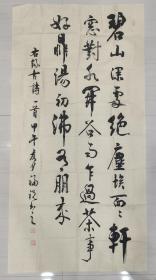 碧山深處絕塵埃面々軒
窓對水開谷雨乍過茶事
好鼎湯初沸有朋來
古詩一首甲午春書之